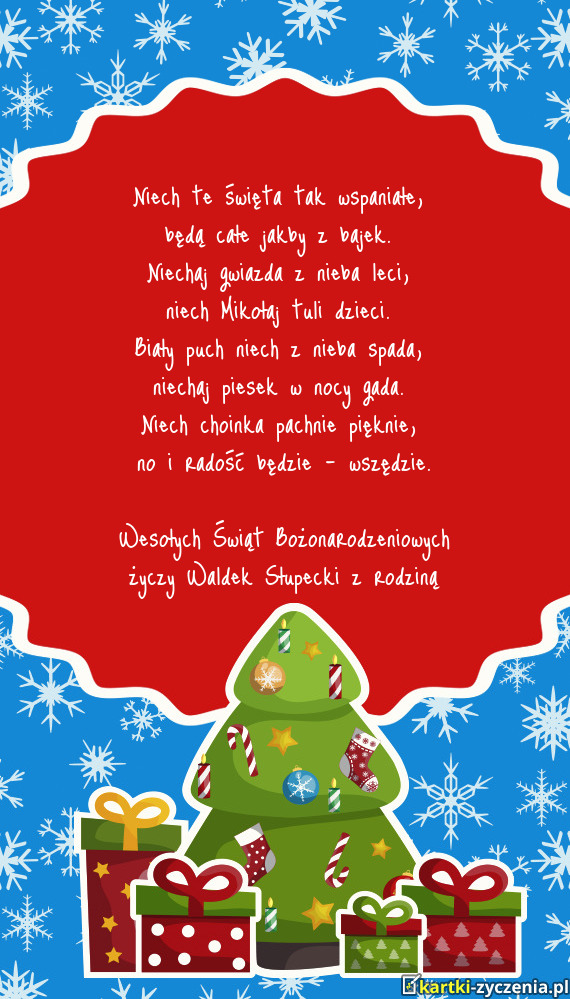 Niech te święta tak wspaniałe,
będą całe jakby z bajek.
Niechaj gwiazda z nieba leci,
niech Mikołaj tuli dzieci.
Biały puch niech z nieba spada,
niechaj piesek w nocy gada.
Niech choinka pachnie pięknie,
no i radość będzie - wszędzie.
Wesołych Świąt Bożonarodzeniowych
życzy Waldek Słupecki z rodziną
kartki-zyczenia.pl